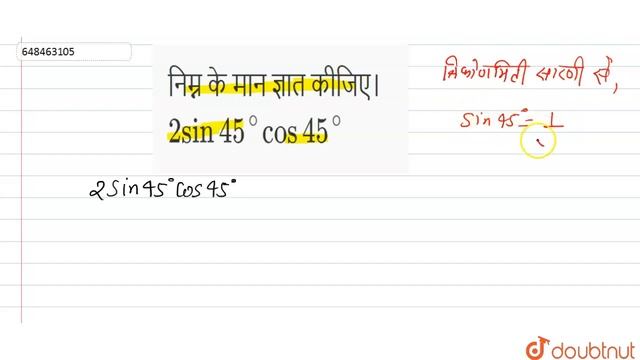 648463105
निम्न के मान ज्ञात कीजिए।
2sin 45° cos 45°
त्रिकोणमिती सारणी से,
sin 45° = 1
2 sin 45° cos 45°
doubtnut